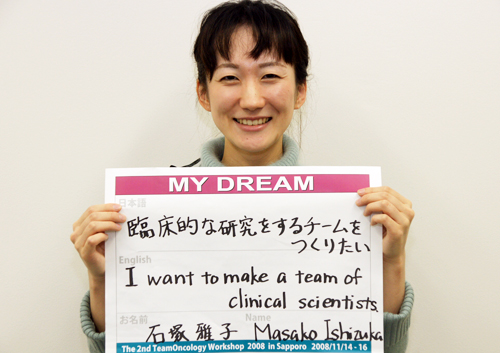 MY DREAM
日本語
臨床的な研究をするチームを
つくりたい
English
I want to make a team of
clinical scientists.
お名前 Name
石塚 雅子 Masako Ishizuka
The 2nd TeamOncology Workshop 2008 in Sapporo 2008/11/14 - 16